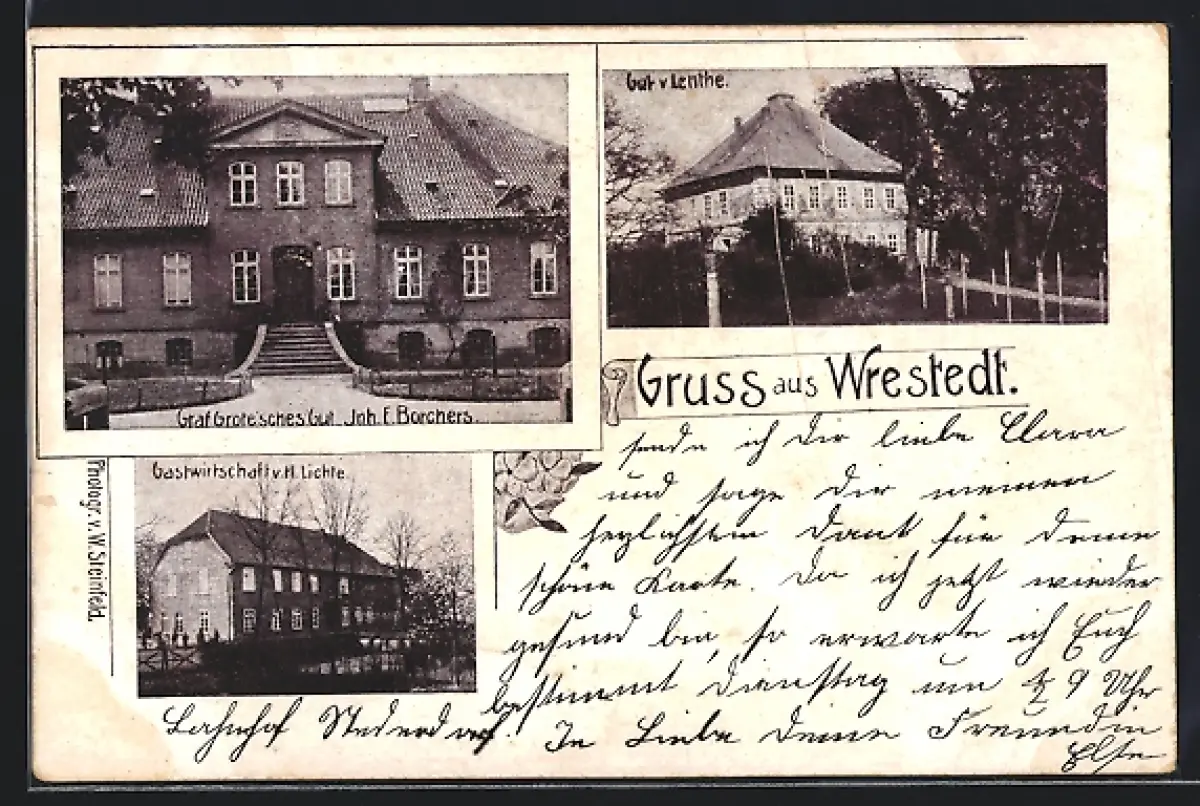 Gut v Lenthe.
Graf Grote'sches Gut Jnh. E. Borchers.
Gruss aus Wrestedt.
Gastwirtschaft v. H. Lichte.
Photogr. v. W. Steinfeld.
sende ich Dir liebe Clara
und sage Dir meinen
herzlichsten Dank für Deine
schöne Karte. Da ich jetzt wieder
gesund bin, so erwarte ich Euch
bestimmt Dienstag um 9 Uhr
Bahnhof Stederdorf. In Liebe Deine Freundin
Else